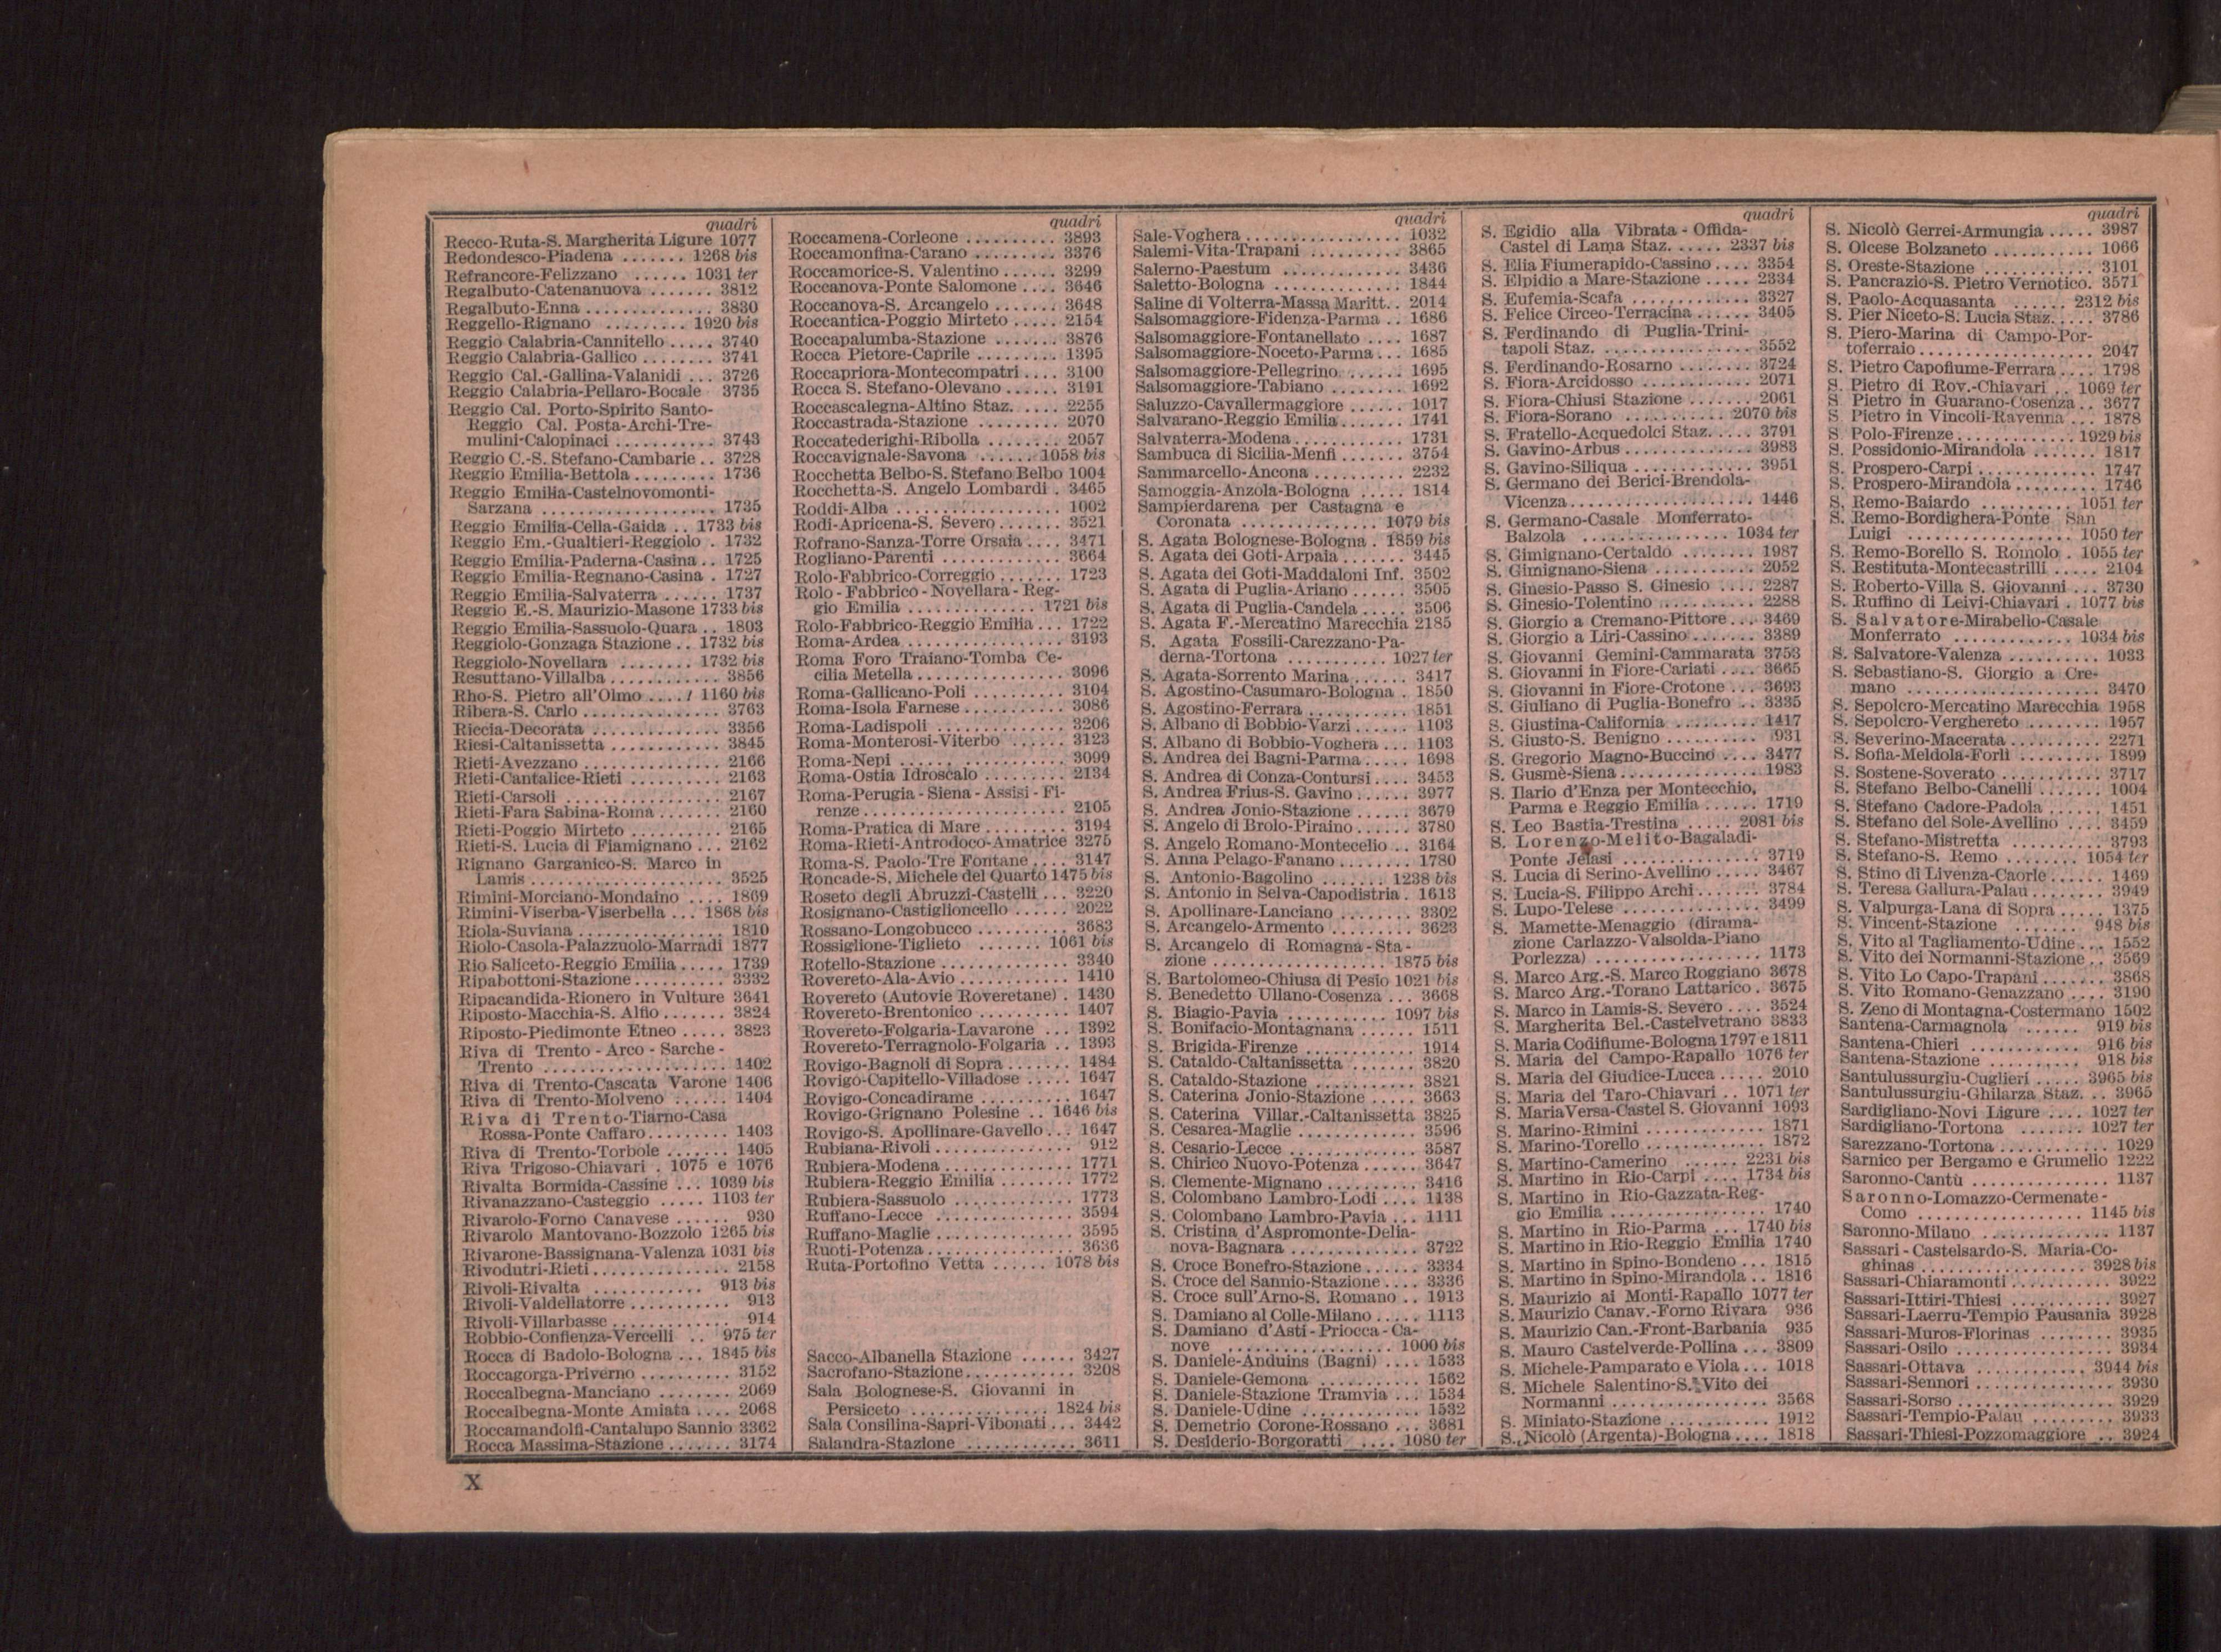 quadri
Recco-Ruta-S. Margherita Ligure 1077
Redondesco-Piadena ....... 1268 bis
Refrancore-Felizzano ...... 1031 ter
Regalbuto-Catenanuova ....... 3812
Regalbuto-Enna .............. 3830
Reggello-Rignano ......... 1920 bis
Reggio Calabria-Cannitello ..... 3740
Reggio Calabria-Gallico ........ 3741
Reggio Cal.-Gallina-Valanidi ... 3726
Reggio Calabria-Pellaro-Bocale 3735
Reggio Cal. Porto-Spirito Santo-
Reggio Cal. Posta-Archi-Tre-
mulini-Calopinaci ........... 3743
Reggio C.-S. Stefano-Cambarie .. 3728
Reggio Emilia-Bettola ......... 1736
Reggio Emilia-Castelnovomonti-
Sarzana .................. 1735
Reggio Emilia-Cella-Gaida .. 1733 bis
Reggio Em.-Gualtieri-Reggiolo . 1732
Reggio Emilia-Paderna-Casina .. 1725
Reggio Emilia-Regnano-Casina . 1727
Reggio Emilia-Salvaterra ...... 1737
Reggio E.-S. Maurizio-Masone 1733 bis
Reggio Emilia-Sassuolo-Quara .. 1803
Reggiolo-Gonzaga Stazione .. 1732 bis
Reggiolo-Novellara ........ 1732 bis
Resuttano-Villalba ............ 3856
Rho-S. Pietro all'Olmo .... 1160 bis
Ribera-S. Carlo ............... 3763
Riccia-Decorata .............. 3356
Riesi-Caltanissetta ............ 3845
Rieti-Avezzano ............... 2166
Rieti-Cantalice-Rieti .......... 2163
Rieti-Carsoli ................. 2167
Rieti-Fara Sabina-Roma ....... 2160
Rieti-Poggio Mirteto .......... 2165
Rieti-S. Lucia di Fiamignano ... 2162
Rignano Garganico-S. Marco in
Lamis ..................... 3525
Rimini-Morciano-Mondaino .... 1869
Rimini-Viserba-Viserbella ... 1868 bis
Riola-Suviana ................ 1810
Riolo-Casola-Palazzuolo-Marradi 1877
Rio Saliceto-Reggio Emilia ..... 1739
Ripabottoni-Stazione .......... 3332
Ripacandida-Rionero in Vulture 3641
Riposto-Macchia-S. Alfio ....... 3824
Riposto-Piedimonte Etneo ..... 3823
Riva di Trento - Arco - Sarche -
Trento .................... 1402
Riva di Trento-Cascata Varone 1406
Riva di Trento-Molveno ...... 1404
Riva di Trento-Tiarno-Casa
Rossa-Ponte Caffaro ......... 1403
Riva di Trento-Torbole ....... 1405
Riva Trigoso-Chiavari . 1075 e 1076
Rivalta Bormida-Cassine ... 1039 bis
Rivanazzano-Casteggio ..... 1103 ter
Rivarolo-Forno Canavese ...... 930
Rivarolo Mantovano-Bozzolo 1265 bis
Rivarone-Bassignana-Valenza 1031 bis
Rivodutri-Rieti ............... 2158
Rivoli-Rivalta ............ 913 bis
Rivoli-Valdellatorre ........... 913
Rivoli-Villarbasse ............. 914
Robbio-Confienza-Vercelli .. 975 ter
Rocca di Badolo-Bologna ... 1845 bis
Roccagorga-Priverno .......... 3152
Roccalbegna-Manciano ........ 2069
Roccalbegna-Monte Amiata .... 2068
Roccamandolfi-Cantalupo Sannio 3362
Rocca Massima-Stazione ....... 3174
quadri
Roccamena-Corleone .......... 3893
Roccamonfina-Carano ......... 3376
Roccamorice-S. Valentino ...... 3299
Roccanova-Ponte Salomone .... 3646
Roccanova-S. Arcangelo ....... 3648
Roccantica-Poggio Mirteto ..... 2154
Roccapalumba-Stazione ....... 3876
Rocca Pietore-Caprile ......... 1395
Roccapriora-Montecompatri .... 3100
Rocca S. Stefano-Olevano ...... 3191
Roccascalegna-Altino Staz. ..... 2255
Roccastrada-Stazione ......... 2070
Roccatederighi-Ribolla ........ 2057
Roccavignale-Savona ...... 1058 bis
Rocchetta Belbo-S. Stefano Belbo 1004
Rocchetta-S. Angelo Lombardi . 3465
Roddi-Alba .................. 1002
Rodi-Apricena-S. Severo ....... 3521
Rofrano-Sanza-Torre Orsaia .... 3471
Rogliano-Parenti ............. 3664
Rolo-Fabbrico-Correggio ....... 1723
Rolo - Fabbrico - Novellara - Reg-
gio Emilia .............. 1721 bis
Rolo-Fabbrico-Reggio Emilia ... 1722
Roma-Ardea ................. 3193
Roma Foro Traiano-Tomba Ce-
cilia Metella ................ 3096
Roma-Gallicano-Poli .......... 3104
Roma-Isola Farnese ........... 3086
Roma-Ladispoli .............. 3206
Roma-Monterosi-Viterbo ...... 3123
Roma-Nepi .................. 3099
Roma-Ostia Idroscalo ......... 2134
Roma-Perugia - Siena - Assisi - Fi-
renze ...................... 2105
Roma-Pratica di Mare ......... 3194
Roma-Rieti-Antrodoco-Amatrice 3275
Roma-S. Paolo-Tre Fontane .... 3147
Roncade-S. Michele del Quarto 1475 bis
Roseto degli Abruzzi-Castelli ... 3220
Rosignano-Castiglioncello ...... 2022
Rossano-Longobucco .......... 3683
Rossiglione-Tiglieto ....... 1061 bis
Rotello-Stazione ............... 3340
Rovereto-Ala-Avio ............ 1410
Rovereto (Autovie Roveretane) . 1430
Rovereto-Brentonico .......... 1407
Rovereto-Folgaria-Lavarone ... 1392
Rovereto-Terragnolo-Folgaria .. 1393
Rovigo-Bagnoli di Sopra ....... 1484
Rovigo-Capitello-Villadose ..... 1647
Rovigo-Concadirame .......... 1647
Rovigo-Grignano Polesine .. 1646 bis
Rovigo-S. Apollinare-Gavello ... 1647
Rubiana-Rivoli ............... 912
Rubiera-Modena .............. 1771
Rubiera-Reggio Emilia ........ 1772
Rubiera-Sassuolo ............. 1773
Ruffano-Lecce ............... 3594
Ruffano-Maglie ............... 3595
Ruoti-Potenza ................ 3636
Ruta-Portofino Vetta ...... 1078 bis
Sacco-Albanella Stazione ...... 3427
Sacrofano-Stazione ............ 3208
Sala Bolognese-S. Giovanni in
Persiceto ............... 1824 bis
Sala Consilina-Sapri-Vibonati ... 3442
Salandra-Stazione ............ 3611
quadri
Sale-Voghera ................. 1032
Salemi-Vita-Trapani .......... 3865
Salerno-Paestum ............. 3436
Saletto-Bologna .............. 1844
Saline di Volterra-Massa Maritt. . 2014
Salsomaggiore-Fidenza-Parma .. 1686
Salsomaggiore-Fontanellato .... 1687
Salsomaggiore-Noceto-Parma ... 1685
Salsomaggiore-Pellegrino ....... 1695
Salsomaggiore-Tabiano ........ 1692
Saluzzo-Cavallermaggiore ...... 1017
Salvarano-Reggio Emilia ....... 1741
Salvaterra-Modena ............ 1731
Sambuca di Sicilia-Menfi ....... 3754
Sammarcello-Ancona .......... 2232
Samoggia-Anzola-Bologna ..... 1814
Sampierdarena per Castagna e
Coronata .............. 1079 bis
S. Agata Bolognese-Bologna . 1859 bis
S. Agata dei Goti-Arpaia ....... 3445
S. Agata dei Goti-Maddaloni Inf. 3502
S. Agata di Puglia-Ariano ...... 3505
S. Agata di Puglia-Candela ..... 3506
S. Agata F.-Mercatino Marecchia 2185
S. Agata Fossili-Carezzano-Pa-
derna-Tortona ........... 1027 ter
S. Agata-Sorrento Marina ...... 3417
S. Agostino-Casumaro-Bologna . 1850
S. Agostino-Ferrara ........... 1851
S. Albano di Bobbio-Varzi ...... 1103
S. Albano di Bobbio-Voghera ... 1103
S. Andrea dei Bagni-Parma ..... 1698
S. Andrea di Conza-Contursi .... 3453
S. Andrea Frius-S. Gavino ...... 3977
S. Andrea Jonio-Stazione ...... 3679
S. Angelo di Brolo-Piraino ...... 3780
S. Angelo Romano-Montecelio .. 3164
S. Anna Pelago-Fanano ........ 1780
S. Antonio-Bagolino ....... 1238 bis
S. Antonio in Selva-Capodistria . 1613
S. Apollinare-Lanciano ........ 3302
S. Arcangelo-Armento ........ 3623
S. Arcangelo di Romagna - Sta-
zione .................. 1875 bis
S. Bartolomeo-Chiusa di Pesio 1021 bis
S. Benedetto Ullano-Cosenza ... 3668
S. Biagio-Pavia ........... 1097 bis
S. Bonifacio-Montagnana ...... 1511
S. Brigida-Firenze ............ 1914
S. Cataldo-Caltanissetta ....... 3820
S. Cataldo-Stazione ........... 3821
S. Caterina Jonio-Stazione ..... 3663
S. Caterina Villar.-Caltanissetta 3825
S. Cesarea-Maglie ............. 3596
S. Cesario-Lecce .............. 3587
S. Chirico Nuovo-Potenza ...... 3647
S. Clemente-Mignano .......... 3416
S. Colombano Lambro-Lodi .... 1138
S. Colombano Lambro-Pavia ... 1111
S. Cristina d'Aspromonte-Delia-
nova-Bagnara ............. 3722
S. Croce Bonefro-Stazione ...... 3334
S. Croce del Sannio-Stazione .... 3336
S. Croce sull'Arno-S. Romano .. 1913
S. Damiano al Colle-Milano ..... 1113
S. Damiano d'Asti - Priocca - Ca-
nove .................. 1000 bis
S. Daniele-Anduins (Bagni) .... 1533
S. Daniele-Gemona ........... 1562
S. Daniele-Stazione Tramvia ... 1534
S. Daniele-Udine ............. 1532
S. Demetrio Corone-Rossano ... 3681
S. Desiderio-Borgoratti .... 1080 ter
quadri
S. Egidio alla Vibrata - Offida-
Castel di Lama Staz. ..... 2337 bis
S. Elia Fiumerapido-Cassino .... 3354
S. Elpidio a Mare-Stazione ..... 2334
S. Eufemia-Scafa ............. 3327
S. Felice Circeo-Terracina ...... 3405
S. Ferdinando di Puglia-Trini-
tapoli Staz. ................ 3552
S. Ferdinando-Rosarno ........ 3724
S. Fiora-Arcidosso ............ 2071
S. Fiora-Chiusi Stazione ....... 2061
S. Fiora-Sorano .......... 2070 bis
S. Fratello-Acquedolci Staz. .... 3791
S. Gavino-Arbus .............. 3983
S. Gavino-Siliqua ............. 3951
S. Germano dei Berici-Brendola-
Vicenza .................... 1446
S. Germano-Casale Monferrato-
Balzola ................ 1034 ter
S. Gimignano-Certaldo ........ 1987
S. Gimignano-Siena ........... 2052
S. Ginesio-Passo S. Ginesio .... 2287
S. Ginesio-Tolentino .......... 2288
S. Giorgio a Cremano-Pittore ... 3469
S. Giorgio a Liri-Cassino ....... 3389
S. Giovanni Gemini-Cammarata 3753
S. Giovanni in Fiore-Cariati .... 3665
S. Giovanni in Fiore-Crotone ... 3693
S. Giuliano di Puglia-Bonefro .. 3335
S. Giustina-California ......... 1417
S. Giusto-S. Benigno .......... 931
S. Gregorio Magno-Buccino .... 3477
S. Gusmè-Siena ............... 1983
S. Ilario d'Enza per Montecchio,
Parma e Reggio Emilia ...... 1719
S. Leo Bastia-Trestina ..... 2081 bis
S. Lorenzo-Melito-Bagaladi-
Ponte Jelasi ............... 3719
S. Lucia di Serino-Avellino ..... 3467
S. Lucia-S. Filippo Archi ....... 3784
S. Lupo-Telese ............... 3499
S. Mamette-Menaggio (dirama-
zione Carlazzo-Valsolda-Piano
Porlezza) .................. 1173
S. Marco Arg.-S. Marco Roggiano 3678
S. Marco Arg.-Torano Lattarico . 3675
S. Marco in Lamis-S. Severo .... 3524
S. Margherita Bel.-Castelvetrano 3833
S. Maria Codifiume-Bologna 1797 e 1811
S. Maria del Campo-Rapallo 1076 ter
S. Maria del Giudice-Lucca ..... 2010
S. Maria del Taro-Chiavari .. 1071 ter
S. Maria Versa-Castel S. Giovanni 1093
S. Marino-Rimini ............. 1871
S. Marino-Torello ............. 1872
S. Martino-Camerino ...... 2231 bis
S. Martino in Rio-Carpi .... 1734 bis
S. Martino in Rio-Gazzata-Reg-
gio Emilia ................. 1740
S. Martino in Rio-Parma ... 1740 bis
S. Martino in Rio-Reggio Emilia 1740
S. Martino in Spino-Bondeno ... 1815
S. Martino in Spino-Mirandola .. 1816
S. Maurizio ai Monti-Rapallo 1077 ter
S. Maurizio Canav.-Forno Rivara 936
S. Maurizio Can.-Front-Barbania 935
S. Mauro Castelverde-Pollina ... 3809
S. Michele-Pamparato e Viola ... 1018
S. Michele Salentino-S. Vito dei
Normanni ................. 3568
S. Miniato-Stazione ........... 1912
S. Nicolò (Argenta)-Bologna .... 1818
quadri
S. Nicolò Gerrei-Armungia ..... 3987
S. Olcese Bolzaneto ........... 1066
S. Oreste-Stazione ............ 3101
S. Pancrazio-S. Pietro Vernotico. 3571
S. Paolo-Acquasanta ...... 2312 bis
S. Pier Niceto-S. Lucia Staz. .... 3786
S. Piero-Marina di Campo-Por-
toferraio ................... 2047
S. Pietro Capofiume-Ferrara .... 1798
S. Pietro di Rov.-Chiavari .. 1069 ter
S. Pietro in Guarano-Cosenza .. 3677
S. Pietro in Vincoli-Ravenna ... 1878
S. Polo-Firenze ............. 1929 bis
S. Possidonio-Mirandola ....... 1817
S. Prospero-Carpi ............. 1747
S. Prospero-Mirandola ......... 1746
S. Remo-Baiardo .......... 1051 ter
S. Remo-Bordighera-Ponte San
Luigi .................. 1050 ter
S. Remo-Borello S. Romolo . 1055 ter
S. Restituta-Montecastrilli ..... 2104
S. Roberto-Villa S. Giovanni ... 3730
S. Ruffino di Leivi-Chiavari . 1077 bis
S. Salvatore-Mirabello-Casale
Monferrato ............. 1034 bis
S. Salvatore-Valenza .......... 1033
S. Sebastiano-S. Giorgio a Cre-
mano ..................... 3470
S. Sepolcro-Mercatino Marecchia 1958
S. Sepolcro-Verghereto ........ 1957
S. Severino-Macerata .......... 2271
S. Sofia-Meldola-Forlì ......... 1899
S. Sostene-Soverato ........... 3717
S. Stefano Belbo-Canelli ....... 1004
S. Stefano Cadore-Padola ...... 1451
S. Stefano del Sole-Avellino .... 3459
S. Stefano-Mistretta .......... 3793
S. Stefano-S. Remo ........ 1054 ter
S. Stino di Livenza-Caorle ...... 1469
S. Teresa Gallura-Palau ........ 3949
S. Valpurga-Lana di Sopra ..... 1375
S. Vincent-Stazione ....... 948 bis
S. Vito al Tagliamento-Udine ... 1552
S. Vito dei Normanni-Stazione .. 3569
S. Vito Lo Capo-Trapani ....... 3868
S. Vito Romano-Genazzano .... 3190
S. Zeno di Montagna-Costermano 1502
Santena-Carmagnola ...... 919 bis
Santena-Chieri ............ 916 bis
Santena-Stazione .......... 918 bis
Santulussurgiu-Cuglieri ..... 3965 bis
Santulussurgiu-Ghilarza Staz. .. 3965
Sardigliano-Novi Ligure .... 1027 ter
Sardigliano-Tortona ....... 1027 ter
Sarezzano-Tortona ............ 1029
Sarnico per Bergamo e Grumello 1222
Saronno-Cantù ............... 1137
Saronno-Lomazzo-Cermenate-
Como ................. 1145 bis
Saronno-Milano .............. 1137
Sassari - Castelsardo-S. Maria-Co-
ghinas .................. 3928 bis
Sassari-Chiaramonti ........... 3922
Sassari-Ittiri-Thiesi ........... 3927
Sassari-Laerru-Tempio Pausania 3928
Sassari-Muros-Florinas ........ 3935
Sassari-Osilo ................. 3934
Sassari-Ottava ............ 3944 bis
Sassari-Sennori ............... 3930
Sassari-Sorso ................ 3929
Sassari-Tempio-Palau ......... 3933
Sassari-Thiesi-Pozzomaggiore .. 3924
X